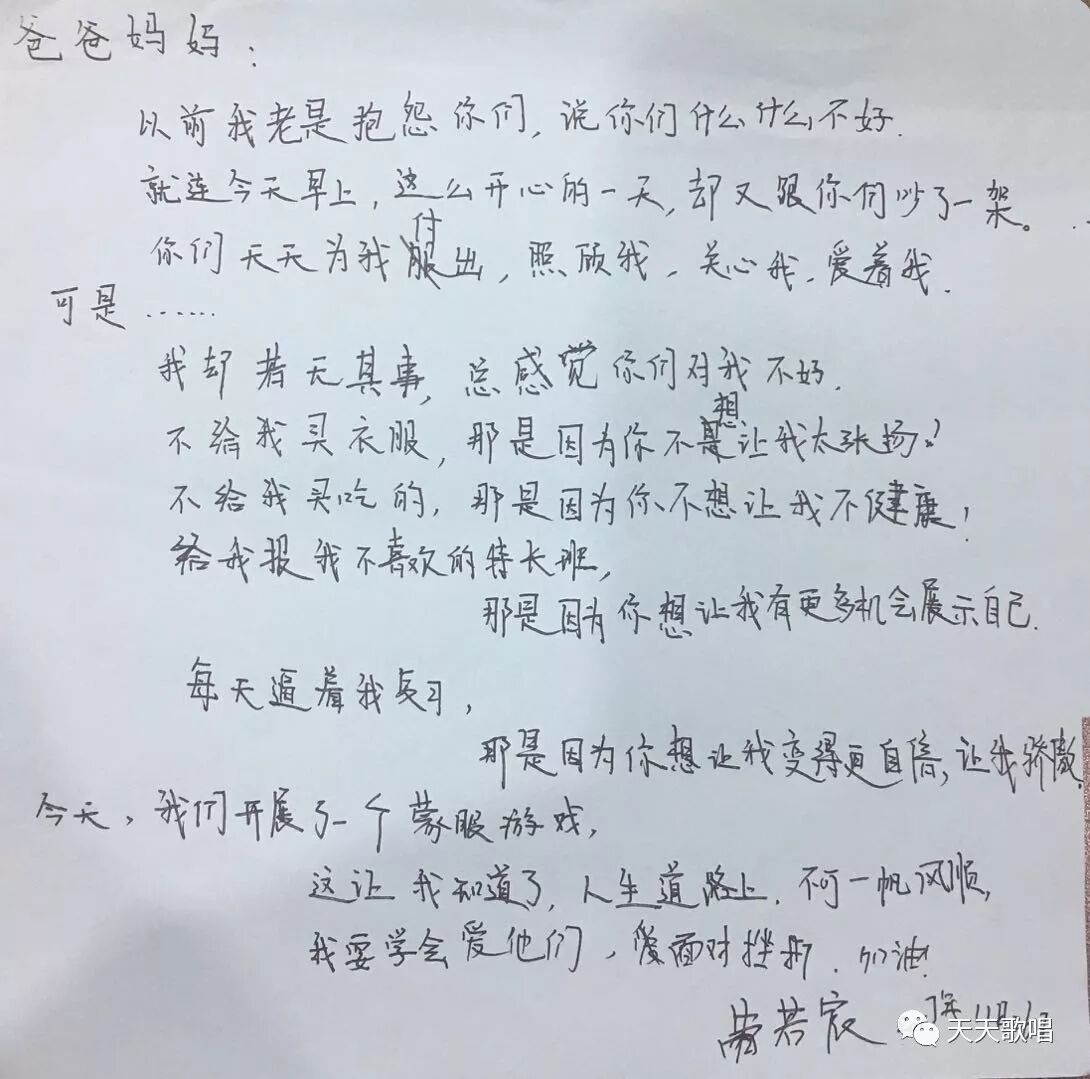 爸爸妈妈:
以前我老是抱怨你们,说你们什么什么不好.
就连今天早上,这么开心的一天,却又跟你们吵了一架。
你们天天为我付出,照顾我,关心我,爱着我.
可是……
我却若无其事,总感觉你们对我不好.
不给我买衣服,那是因为你不想让我太张扬?
不给我买吃的,那是因为你不想让我不健康!
给我报我不喜欢的特长班,
那是因为你想让我有更多机会展示自己.
每天逼着我复习,
那是因为你想让我变得更自信,让我骄傲.
今天,我们开展了一个蒙服游戏,
这让我知道了,人生道路上.不可一帆风顺,
我要学会爱他们,爱面对挫折.加油!
若宸
天天歌唱